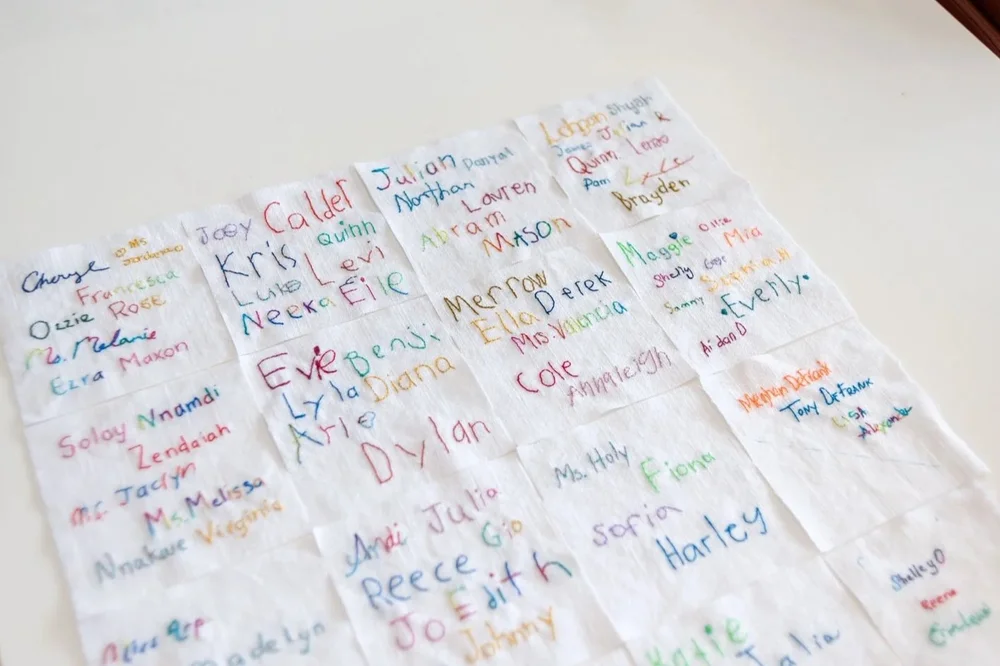 Cheryl Ms
Francesca
Ozzie Rose
Ms. Melanie
Ezra Maxon
Joey Calder
Kris Quinn
Luke Levi
Neeka Elle
Julian Danyal
Northan
Lauren
Abram
MASON
Logan Shyah
James Julian R
Quinn Leno
Pam
Brayden
Soloy Nnamdi
Zendaiah
Ms. Jaclyn
Ms. Melissa
Nnakaue Virginia
Evie Benji
Lyla Diana
Arlo
Dylan
Merrow
Ella Derek
Mrs. Valencia
Cole
Annaleigh
Maggie Ollie
Mia
Shelly
Sammy
•Everly•
Aidan D
Andi Julia
Reece Gio
Edith
Jo
Johnny
Ms. Holy
Fiona
Sofia
Harley
Meghan DeFrank
Tony DeFrank
LISA
Alexander
Madelyn
Katie
Julia
Shelley O
Reena